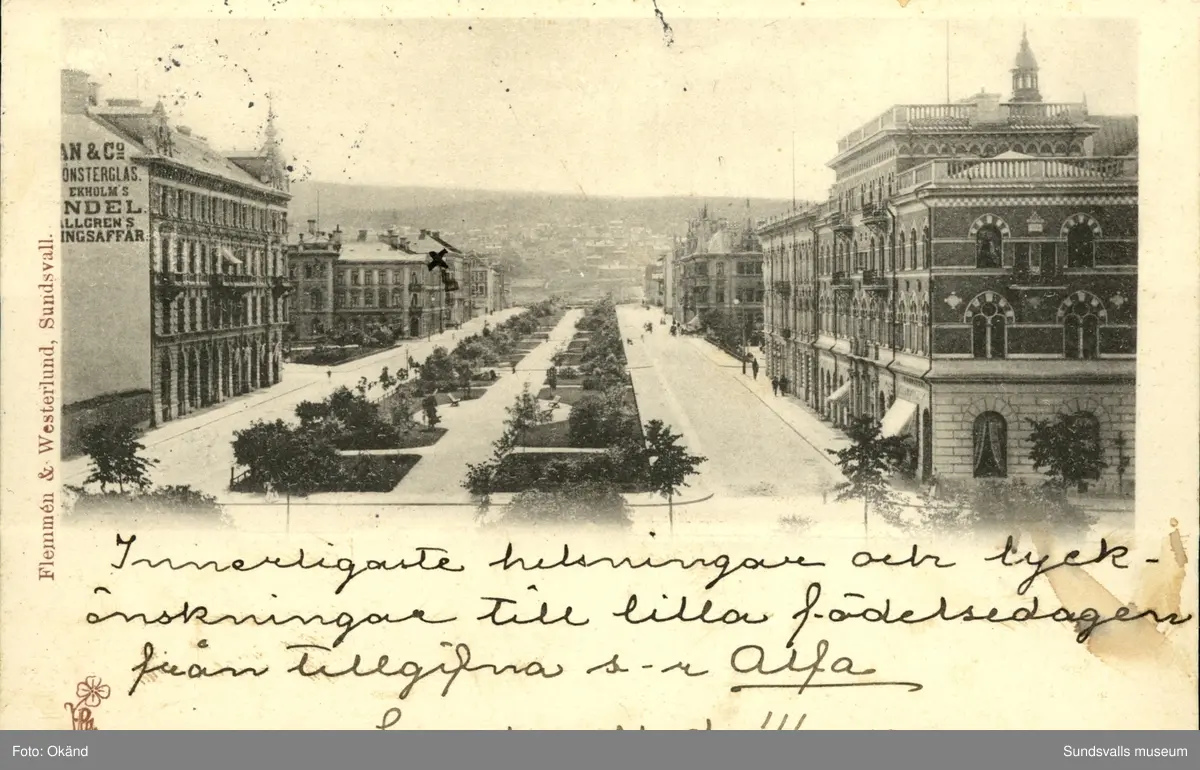 AN & Co
ÖNSTERGLAS.
EKHOLM'S
NDEL
ALLGREN'S
INGSAFFÄR
Flemmén & Westerlund, Sundsvall.
Innerligaste helsningar och lyck-
önskningar till lilla födelsedagen
från tillgifna s-r Alfa
Foto: Okänd
Sundsvalls museum